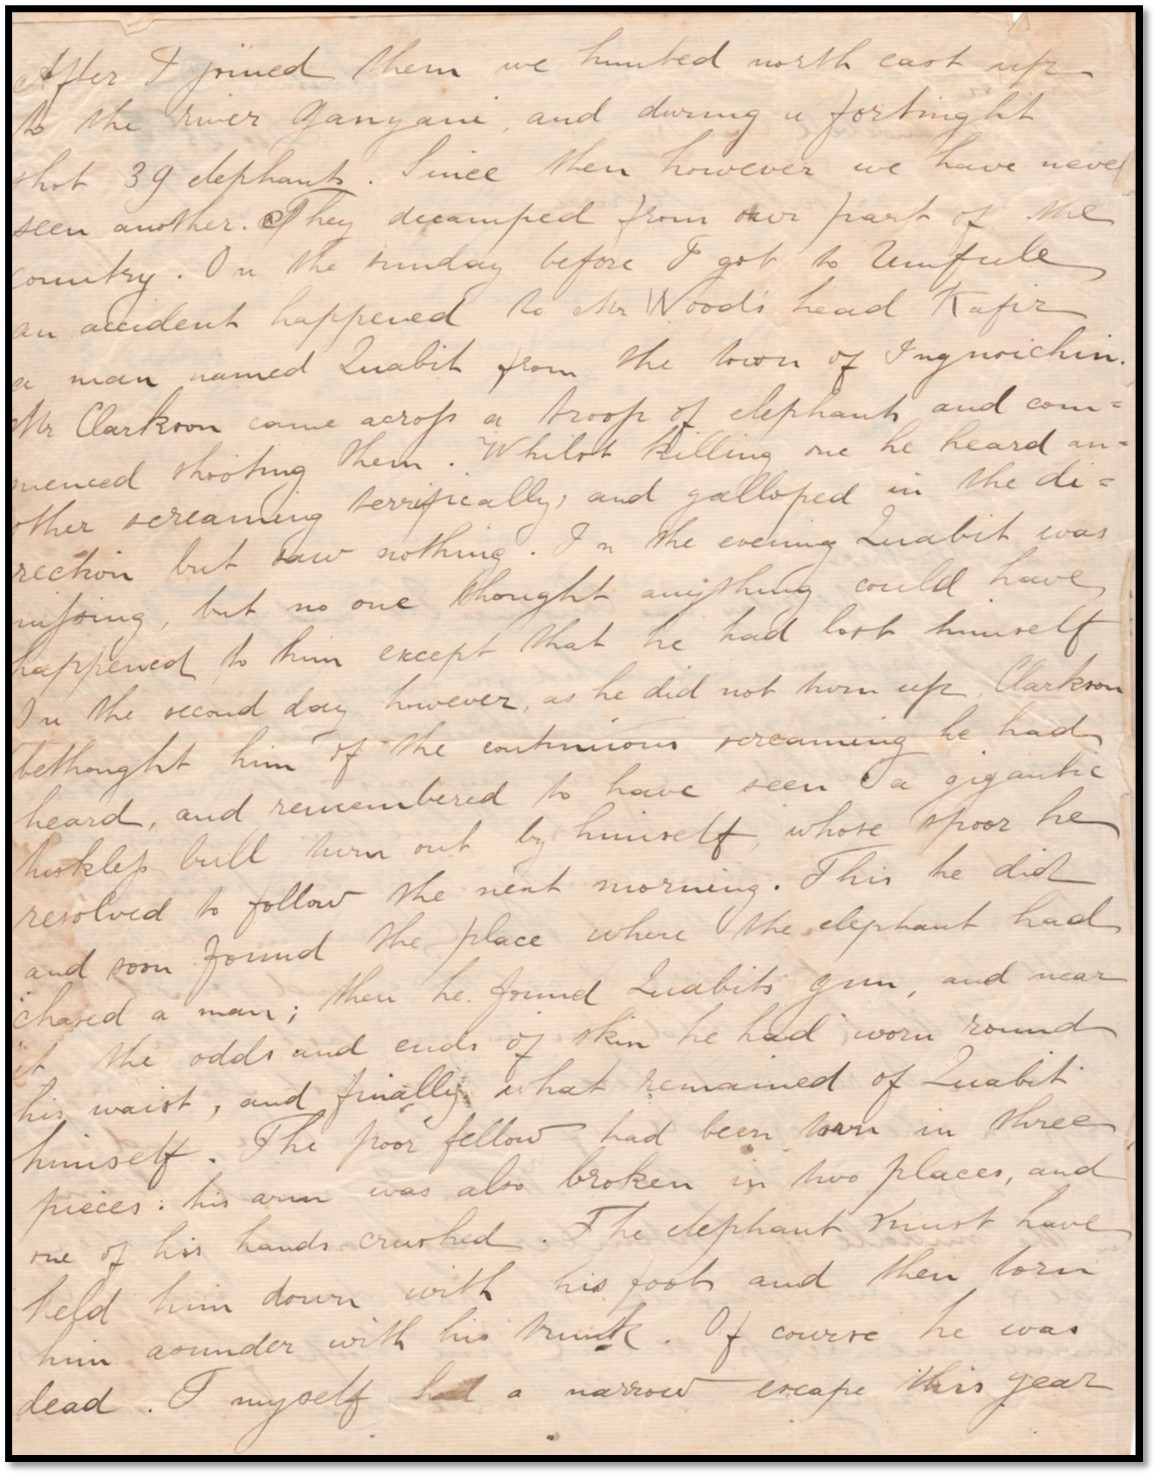 After I joined them we hunted north east up
to the river Ganyani, and during a fortnight
shot 39 elephants. Since then however we have never
seen another. They decamped from our part of the
country. On the sunday before I got to Umfule
an accident happened to Mr Wood's head Kafir
a man named Quabit from the town of Ingnoichin.
Mr Clarkson came across a troop of elephants and com=
menced shooting them. Whilst killing one he heard an=
other screaming terrifically, and galloped in the di=
rection but saw nothing. In the evening Quabit was
missing, but no one thought anything could have
happened to him except that he had lost himself
In the second day however, as he did not turn up, Clarkson
bethought him of the continuous screaming he had
heard, and remembered to have seen a gigantic
tuskless bull turn out by himself, whose spoor he
resolved to follow the next morning. This he did
and soon found the place where the elephant had
chased a man; then he found Quabits gun, and near
it the odds and ends of skin he had worn round
his waist, and finally what remained of Quabit
himself. The poor fellow had been torn in three
pieces: his arm was also broken in two places, and
one of his hands crushed. The elephant must have
held him down with his foot and then torn
him asunder with his trunk. Of course he was
dead. I myself had a narrow escape this year